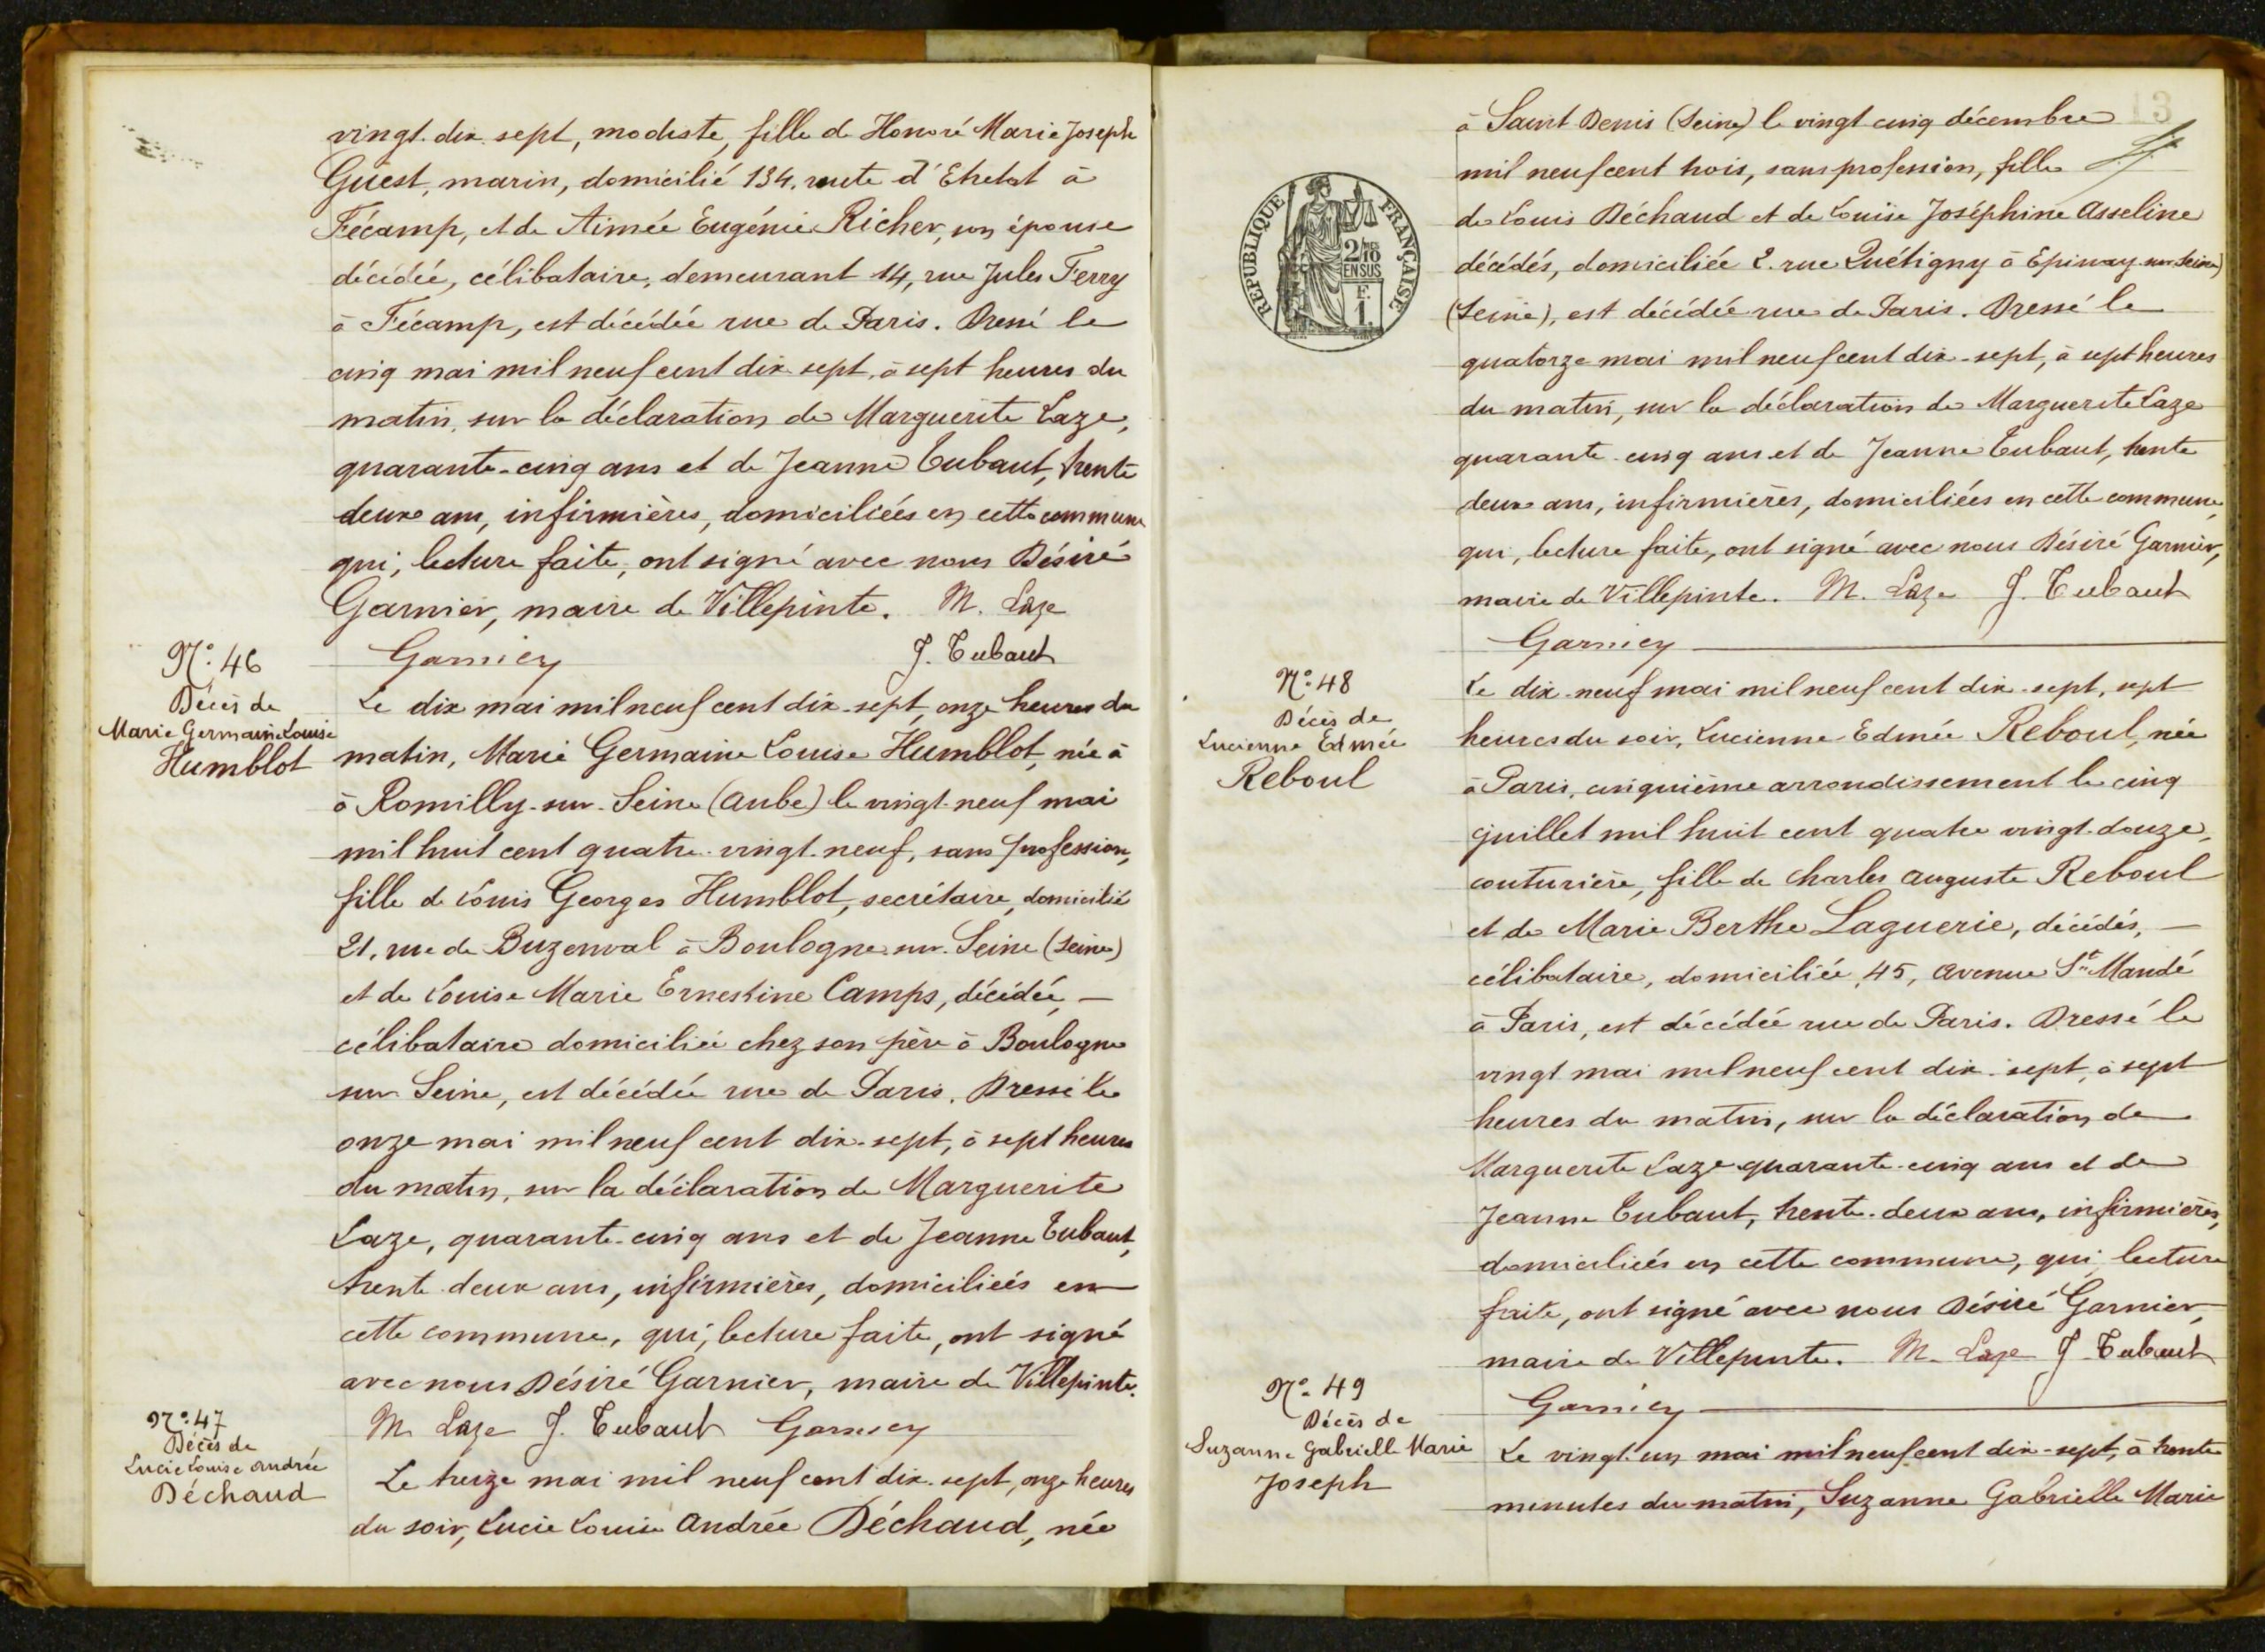 vingt-dix-sept, modiste, fille de Honoré Marie Joseph
Guest, marin, domicilié 134, route d'Etretat à
Fécamp, et de Aimée Eugénie Richer, son épouse
décédée, célibataire, demeurant 14, rue Jules Ferry
à Fécamp, est décédée rue de Paris. Dressé le
cinq mai mil neuf cent dix-sept, à sept heures du
matin, sur la déclaration de Marguerite Laze,
quarante-cinq ans et de Jeanne Tubaut, trente
deux ans, infirmières, domiciliées en cette commune
qui, lecture faite, ont signé avec nous Désiré
Garnier, maire de Villepinte. M. Laze
Garnier J. Tubaut
N° 46
Décès de
Marie Germaine Louise
Humblot
Le dix mai mil neuf cent dix-sept, onze heures du
matin, Marie Germaine Louise Humblot, née à
à Romilly-sur-Seine (Aube) le vingt-neuf mai
mil huit cent quatre-vingt-neuf, sans profession,
fille de Louis Georges Humblot, secrétaire, domicilié
21, rue de Buzenval à Boulogne-sur-Seine (Seine)
et de Louise Marie Ernestine Camps, décédée, —
célibataire domiciliée chez son père à Boulogne
sur Seine, est décédée rue de Paris. Dressé le
onze mai mil neuf cent dix-sept, à sept heures
du matin, sur la déclaration de Marguerite
Laze, quarante-cinq ans et de Jeanne Tubaut,
trente-deux ans, infirmières, domiciliées en
cette commune, qui, lecture faite, ont signé
avec nous Désiré Garnier, maire de Villepinte.
M. Laze J. Tubaut Garnier
N° 47
Décès de
Lucie Louise Andrée
Déchaud
Le treize mai mil neuf cent dix-sept, onze heures
du soir, Lucie Louise Andrée Déchaud, née
13
à Saint Denis (Seine) le vingt cinq décembre
mil neuf cent trois, sans profession, fille
de Louis Déchaud et de Louise Joséphine Asseline
décédés, domiciliée 2, rue Quétigny à Epinay-sur-Seine)
(Seine), est décédée rue de Paris. Dressé le
quatorze mai mil neuf cent dix-sept, à sept heures
du matin, sur la déclaration de Marguerite Laze
quarante-cinq ans et de Jeanne Tubaut, trente
deux ans, infirmières, domiciliées en cette commune,
qui, lecture faite, ont signé avec nous Désiré Garnier,
maire de Villepinte. M. Laze J. Tubaut
Garnier
RÉPUBLIQUE FRANÇAISE
2/10
EN SUS
F.
1.
N° 48
Décès de
Lucienne Edmée
Reboul
Le dix-neuf mai mil neuf cent dix-sept, sept
heures du soir, Lucienne Edmée Reboul, née
à Paris, cinquième arrondissement le cinq
juillet mil huit cent quatre vingt-douze,
couturière, fille de Charles Auguste Reboul
et de Marie Berthe Laguerie, décédés, —
célibataire, domiciliée, 45, Avenue St Mandé
à Paris, est décédée rue de Paris. Dressé le
vingt mai mil neuf cent dix-sept, à sept
heures du matin, sur la déclaration de
Marguerite Laze quarante-cinq ans et de
Jeanne Tubaut, trente-deux ans, infirmières,
domiciliées en cette commune, qui, lecture
faite, ont signé avec nous Désiré Garnier,
maire de Villepinte. M. Laze J. Tubaut
Garnier
N° 49
Décès de
Suzanne Gabrielle Marie
Joseph
Le vingt-un mai mil neuf cent dix-sept, à trente
minutes du matin, Suzanne Gabrielle Marie